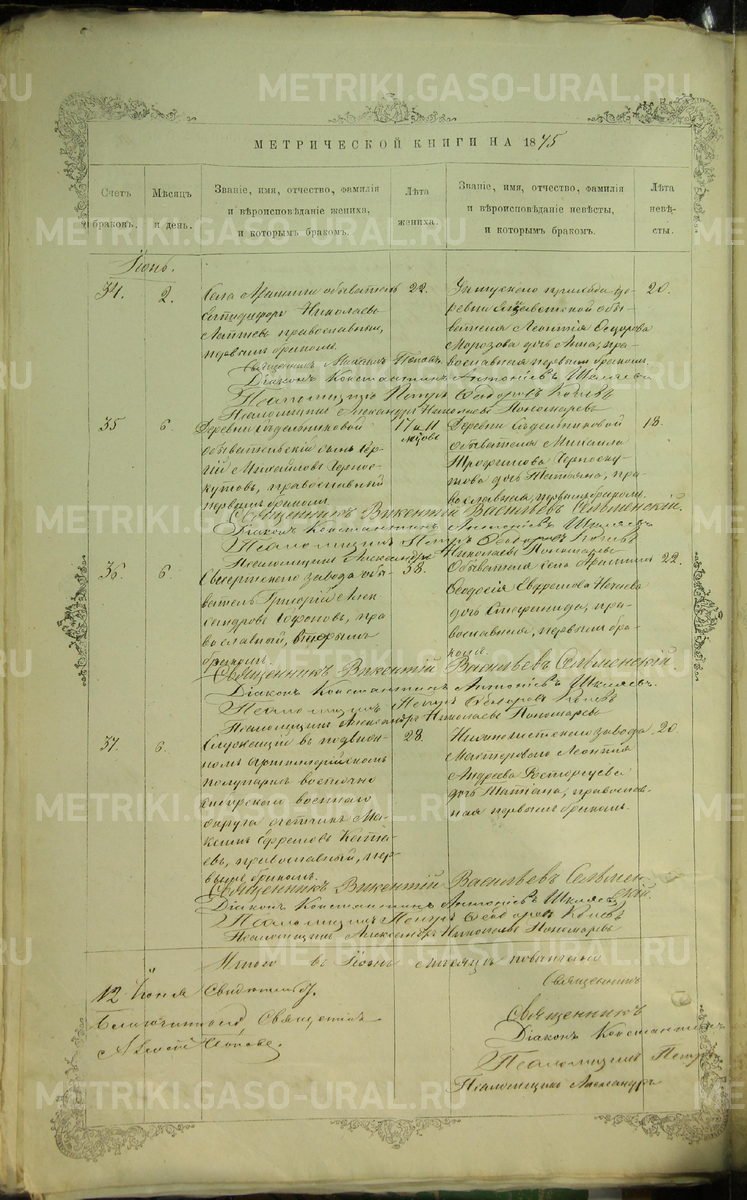 METRIKI.GASO-URAL.RU
МЕТРИЧЕСКОЙ КНИГИ НА 1875
Счетъ браковъ.
Мѣсяцъ и день.
Званіе, имя, отчество, фамилія
и вѣроисповѣданіе жениха,
и которымъ бракомъ.
Лѣта
жениха.
Званіе, имя, отчество, фамилія
и вѣроисповѣданіе невѣсты,
и которымъ бракомъ.
Лѣта
невѣ-
сты.
Іюнь.
34.
2.
Села Арамили обыватель
Николаевъ
православный,
первымъ бракомъ.
22.
прихода де-
ревни обы-
вателя Леонтія Ѳедорова
Морозова дочь Анна, пра-
вославная, первымъ бракомъ.
20.
Священникъ Михаилъ Поповъ
Діаконъ Константинъ Антоніевъ Шкляевъ
Псаломщикъ Петръ Ѳедоровъ
Псаломщикъ Александръ Николаевъ Пономаревъ
35
6.
Деревни
обывательскій сынъ Сер-
гій Михайловъ Черно-
скутовъ, православный
первымъ бракомъ
17 и 11
мѣсяцовъ
Деревни
обывателя Михаила
Трофимова Черноску-
това дочь Татьяна, пра-
вославная, первымъ бракомъ.
18.
Священникъ Викентій Васильевъ Сельменскій.
Діаконъ Константинъ Антоніевъ Шкляевъ
Псаломщикъ Петръ Ѳедоровъ
Псаломщикъ Александръ Николаевъ Пономаревъ
36.
6.
Сысертскаго завода обы-
ватель Григорій Алек-
сандровъ православный, вторымъ
бракомъ.
38.
Обывателя села Арамили
Ефремова
дочь пра-
вославная, первымъ бра-
комъ.
22.
Священникъ Викентій Васильевъ Сельменскій.
Діаконъ Константинъ Антоніевъ Шкляевъ.
Псаломщикъ Петръ Ѳедоровъ
Псаломщикъ Александръ Николаевъ Пономаревъ
37.
6.
Служащій въ подвиж-
номъ артиллерійскомъ
полупаркѣ восточно
сибирскаго военнаго
округа Ма-
ксимъ Ефремовъ
православный, пер-
вымъ бракомъ.
28.
завода
мастероваго Леонтія
Андреева Расторгуева
дочь Татьяна, православ-
ная первымъ бракомъ.
20
Священникъ Викентій Васильевъ Сельмен-
скій.
Діаконъ Константинъ Антоніевъ Шкляевъ
Псаломщикъ Петръ Ѳедоровъ
Псаломщикъ Александръ Николаевъ Пономаревъ
Итого въ Іюнѣ мѣсяцѣ повѣнчано
Священникъ
12 Іюня
Благочинный, Священникъ
Священникъ
Діаконъ Константинъ
Псаломщикъ Петръ
Псаломщикъ Александръ